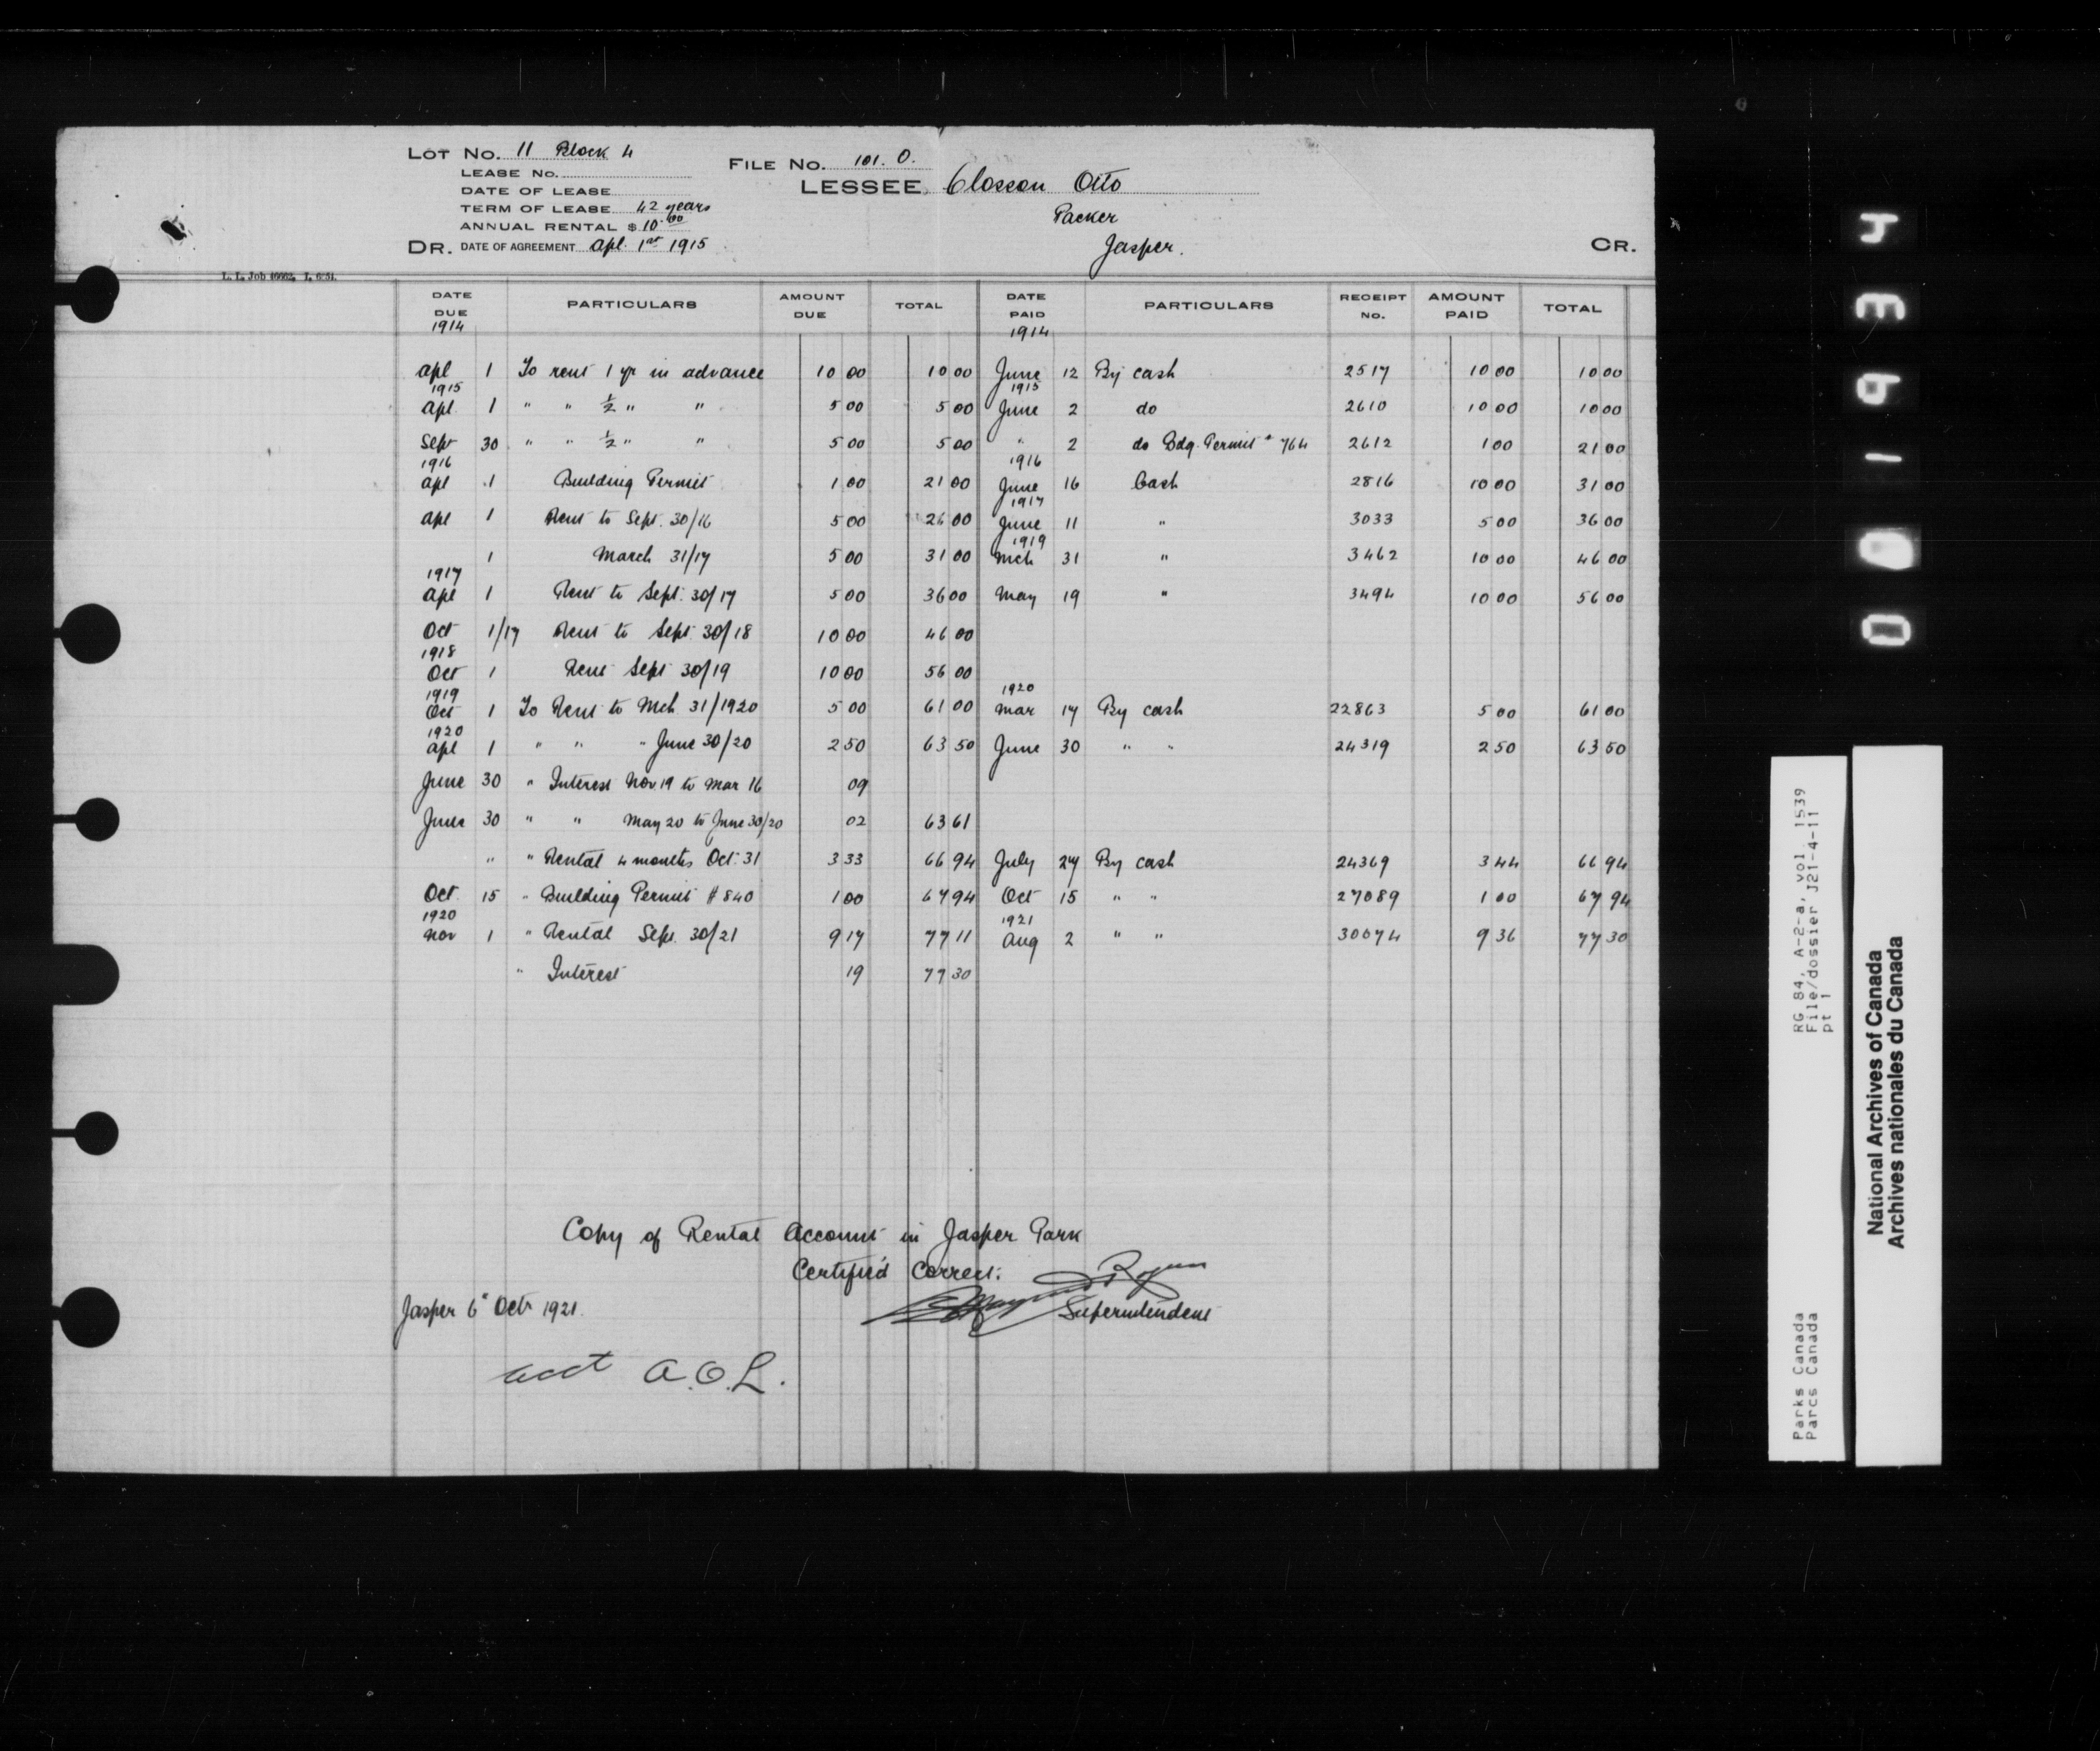 LOT No. 11 Block 4
FILE No. 101. O.
LEASE No.
LESSEE Closson Otto
DATE OF LEASE
TERM OF LEASE 42 years
Packer
ANNUAL RENTAL $ 10.00
DR. DATE OF AGREEMENT Apl. 1st 1915
Jasper.
CR.
L. I. Job 46662, I. 6254.
DATE DUE PARTICULARS AMOUNT DUE TOTAL DATE PAID PARTICULARS RECEIPT No. AMOUNT PAID TOTAL
1914 1914
Apl 1 To rent 1 yr in advance 10 00 10 00 June 12 By cash 2517 10 00 10 00
1915 1915
Apl. 1 " " ½ " " 5 00 5 00 June 2 do 2610 10 00 10 00
Sept 30 " " ½ " " 5 00 5 00 " 2 do Bdg. Permit # 764 2612 1 00 21 00
1916 1916
Apl 1 Building Permit 1 00 21 00 June 16 Cash 2816 10 00 31 00
1917
Apl 1 Rent to Sept. 30/16 5 00 26 00 June 11 " 3033 5 00 36 00
1919
1 March 31/17 5 00 31 00 Mch 31 " 3462 10 00 46 00
1917
Apl 1 Rent to Sept. 30/17 5 00 36 00 May 19 " 3494 10 00 56 00
Oct 1/17 Rent to Sept 30/18 10 00 46 00
1918
Oct 1 Rent Sept 30/19 10 00 56 00
1919 1920
Oct 1 To Rent to Mch 31/1920 5 00 61 00 Mar 17 By cash 22863 5 00 61 00
1920
Apl 1 " " " June 30/20 2 50 63 50 June 30 " " 24319 2 50 63 50
June 30 " Interest Nov. 19 to Mar 16 09
June 30 " " May 20 to June 30/20 02 63 61
" " Rental 4 months Oct. 31 3 33 66 94 July 27 By cash 24369 3 44 66 94
Oct. 15 " Building Permit # 840 1 00 67 94 Oct 15 " " 27089 1 00 67 94
1920 1921
Nov 1 " Rental Sept. 30/21 9 17 77 11 Aug 2 " " 30074 9 36 77 30
" Interest 19 77 30
Copy of Rental Account in Jasper Park
Certified Correct:
Rogers
Jasper 6th Octr 1921.
Superintendent
acct A.O.L.
001934
RG 84, A-2-a, vol. 1539
File/dossier J21-4-11
pt 1
Parks Canada
Parcs Canada
National Archives of Canada
Archives nationales du Canada